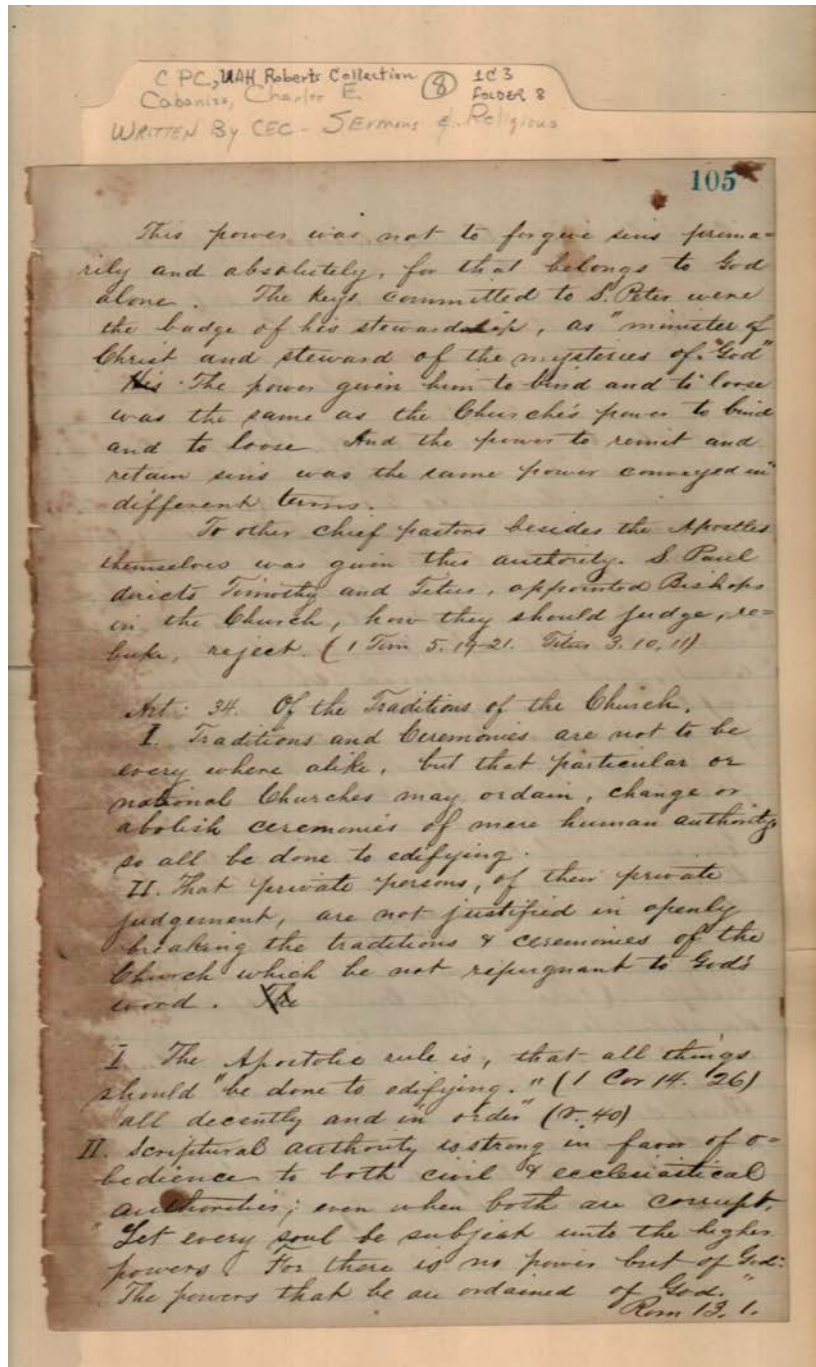 C PC, UAH Roberts Collection (8) 1C3
Cabaniss, Charles E. FOLDER 8
WRITTEN By CEC - SErmons & Religious
105
This power was not to forgive sins prima=
rily and absolutely, for that belongs to God
alone. The keys committed to S. Peter were
the badge of his stewardship, as "minister of
Christ and steward of the mysteries of "God"
His The power given him to bind and to loose
was the same as the Churche's power to bind
and to loose. And the power to remit and
retain sins was the same power conveyed in
different terms.
To other chief pastors besides the Apostles
themselves was given this authority. S Paul
directs Timothy and Titus, appointed Bishops
in the Church, how they should judge, re=
buke, reject. (1 Tim 5. 19-21. Titus 3. 10, 11)
Art. 34. Of the Traditions of the Church.
I. Traditions and Ceremonies are not to be
every where alike, but that particular or
national Churches may ordain, change or
abolish ceremonies of mere human authority
so all be done to edifying.
II. That private persons, of their private
judgement, are not justified in openly
breaking the traditions & ceremonies of the
Church which be not repugnant to God's
word. The
I The Apostolic rule is, that all things
should "be done to edifying." (1 Cor 14. 26)
"all decently and in order" (v. 40)
II. Scriptural authority is strong in favor of o=
bedience to both civil & ecclesiastical
authorities; even when both are corrupt.
"Let every soul be subject unto the higher
powers. For there is no power but of God:
The powers that be are ordained of God."
Rom 13. 1.